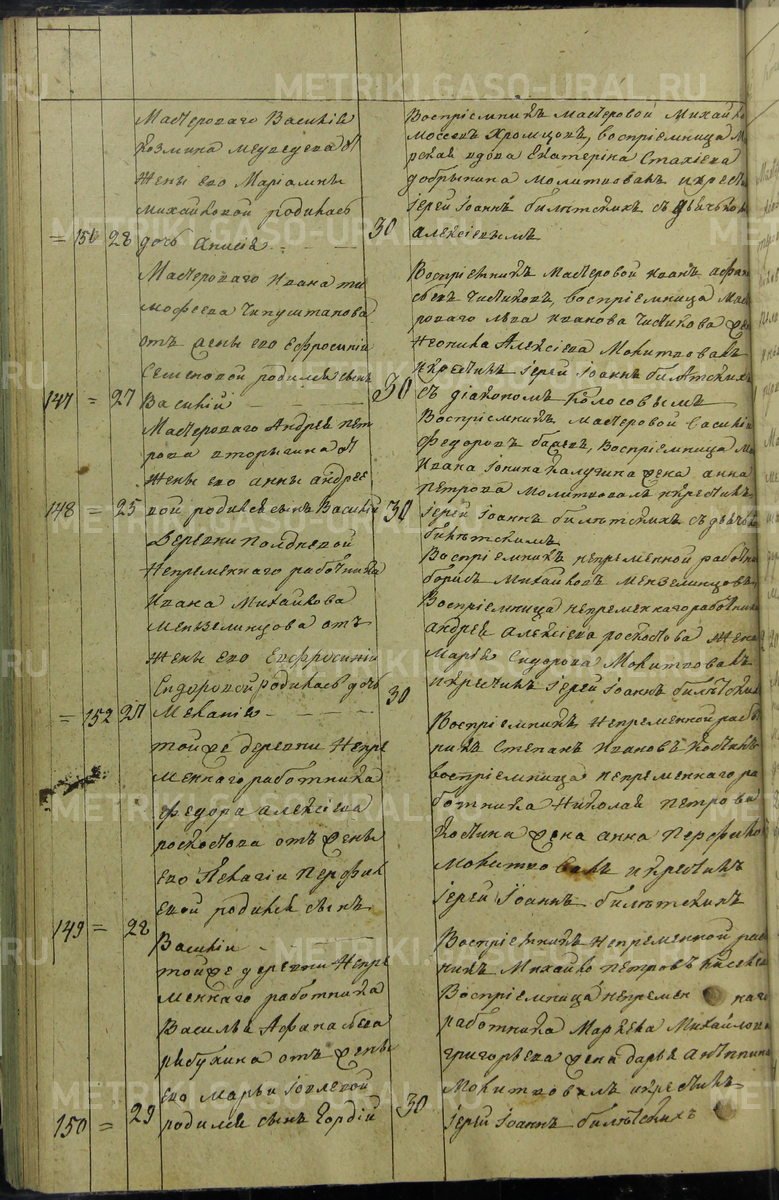 METRIKI.GASO-URAL.RU
Мастероваго Василія
Козмина Медведева от
жены его Маріамны
Михайловой родилась
= 151 28 дочь Анисія
30
Воспріемникъ мастеровой Михайло
Моссевъ Хромцовъ, воспріемница
вдова Екатерина Стахіева
Добрынина молитвовалъ и крест
Іерей Іоаннъ Билѣтскихъ съ
Алексіевымъ
Мастероваго Ивана Ти
мофеева Чипуштанова
отъ жены его Ефросиніи
Семеновой родился сынъ
147 = 27 Василій
30
Воспріемникъ Мастеровой Иванъ Афана
сьевъ Чистяковъ, воспріемница Мас
роваго Льва Иванова Чистякова жена
Неонила Алексіева Молитвовалъ
и крестилъ Іерей Іоаннъ Билѣтскихъ
съ діакономъ Колосовымъ
Мастероваго Андрея Пет
рова Вторыгина от
жены его Анны Андрее
148 = 25 вой родился сынъ Василій
30
Воспріемникъ мастеровой Василій
Федоровъ Воспріемница
Ивана Іонина Калугина жена Анна
Петрова Молитвовалъ и крестилъ
Іерей Іоаннъ Билѣтскихъ съ дьячк
Билѣтскимъ
Деревни Полдневой
Непременнаго работника
Ивана Михайлова
Мензелинцова отъ
жены его Евфросиніи
Сидоровой родилась дочь
= 152 27 Меланія
30
Воспріемникъ непременной работни
Борисъ Михайловъ Мензелинцовъ,
Воспріемница непременнаго работника
Андрея Алексіева Роскостова жена
Марія Сидорова Молитвовалъ
и крестилъ Іерей Іоаннъ Билѣтских
той же деревни Непре
меннаго работника
Федора Алексіева
Роскостова отъ жены
его Пелагіи Перфил
евой родился сынъ
149 = 28 Василіи
Воспріемникъ Непременной рабо
никъ Степанъ Ивановъ Костинъ
воспріемница Непременнаго ра
ботника Николая Петрова
Костина жена Анна Перфило
Молитвовалъ и крестилъ
Іерей Іоаннъ Билѣтскихъ
той же деревни Непре
меннаго работника
Василья Афанасьева
Рябухина отъ жены
его Марьи Іовлевой
150 = 29 родился сынъ Гордій
30
Воспріемникъ Непременной раб
никъ Михайло Петровъ
Воспріемница непремен наго
работника Маркела Михайлова
Григорьева жена Дарья Антипина
Молитвовалъ и крестилъ
Іерей Іоаннъ Билѣтскихъ